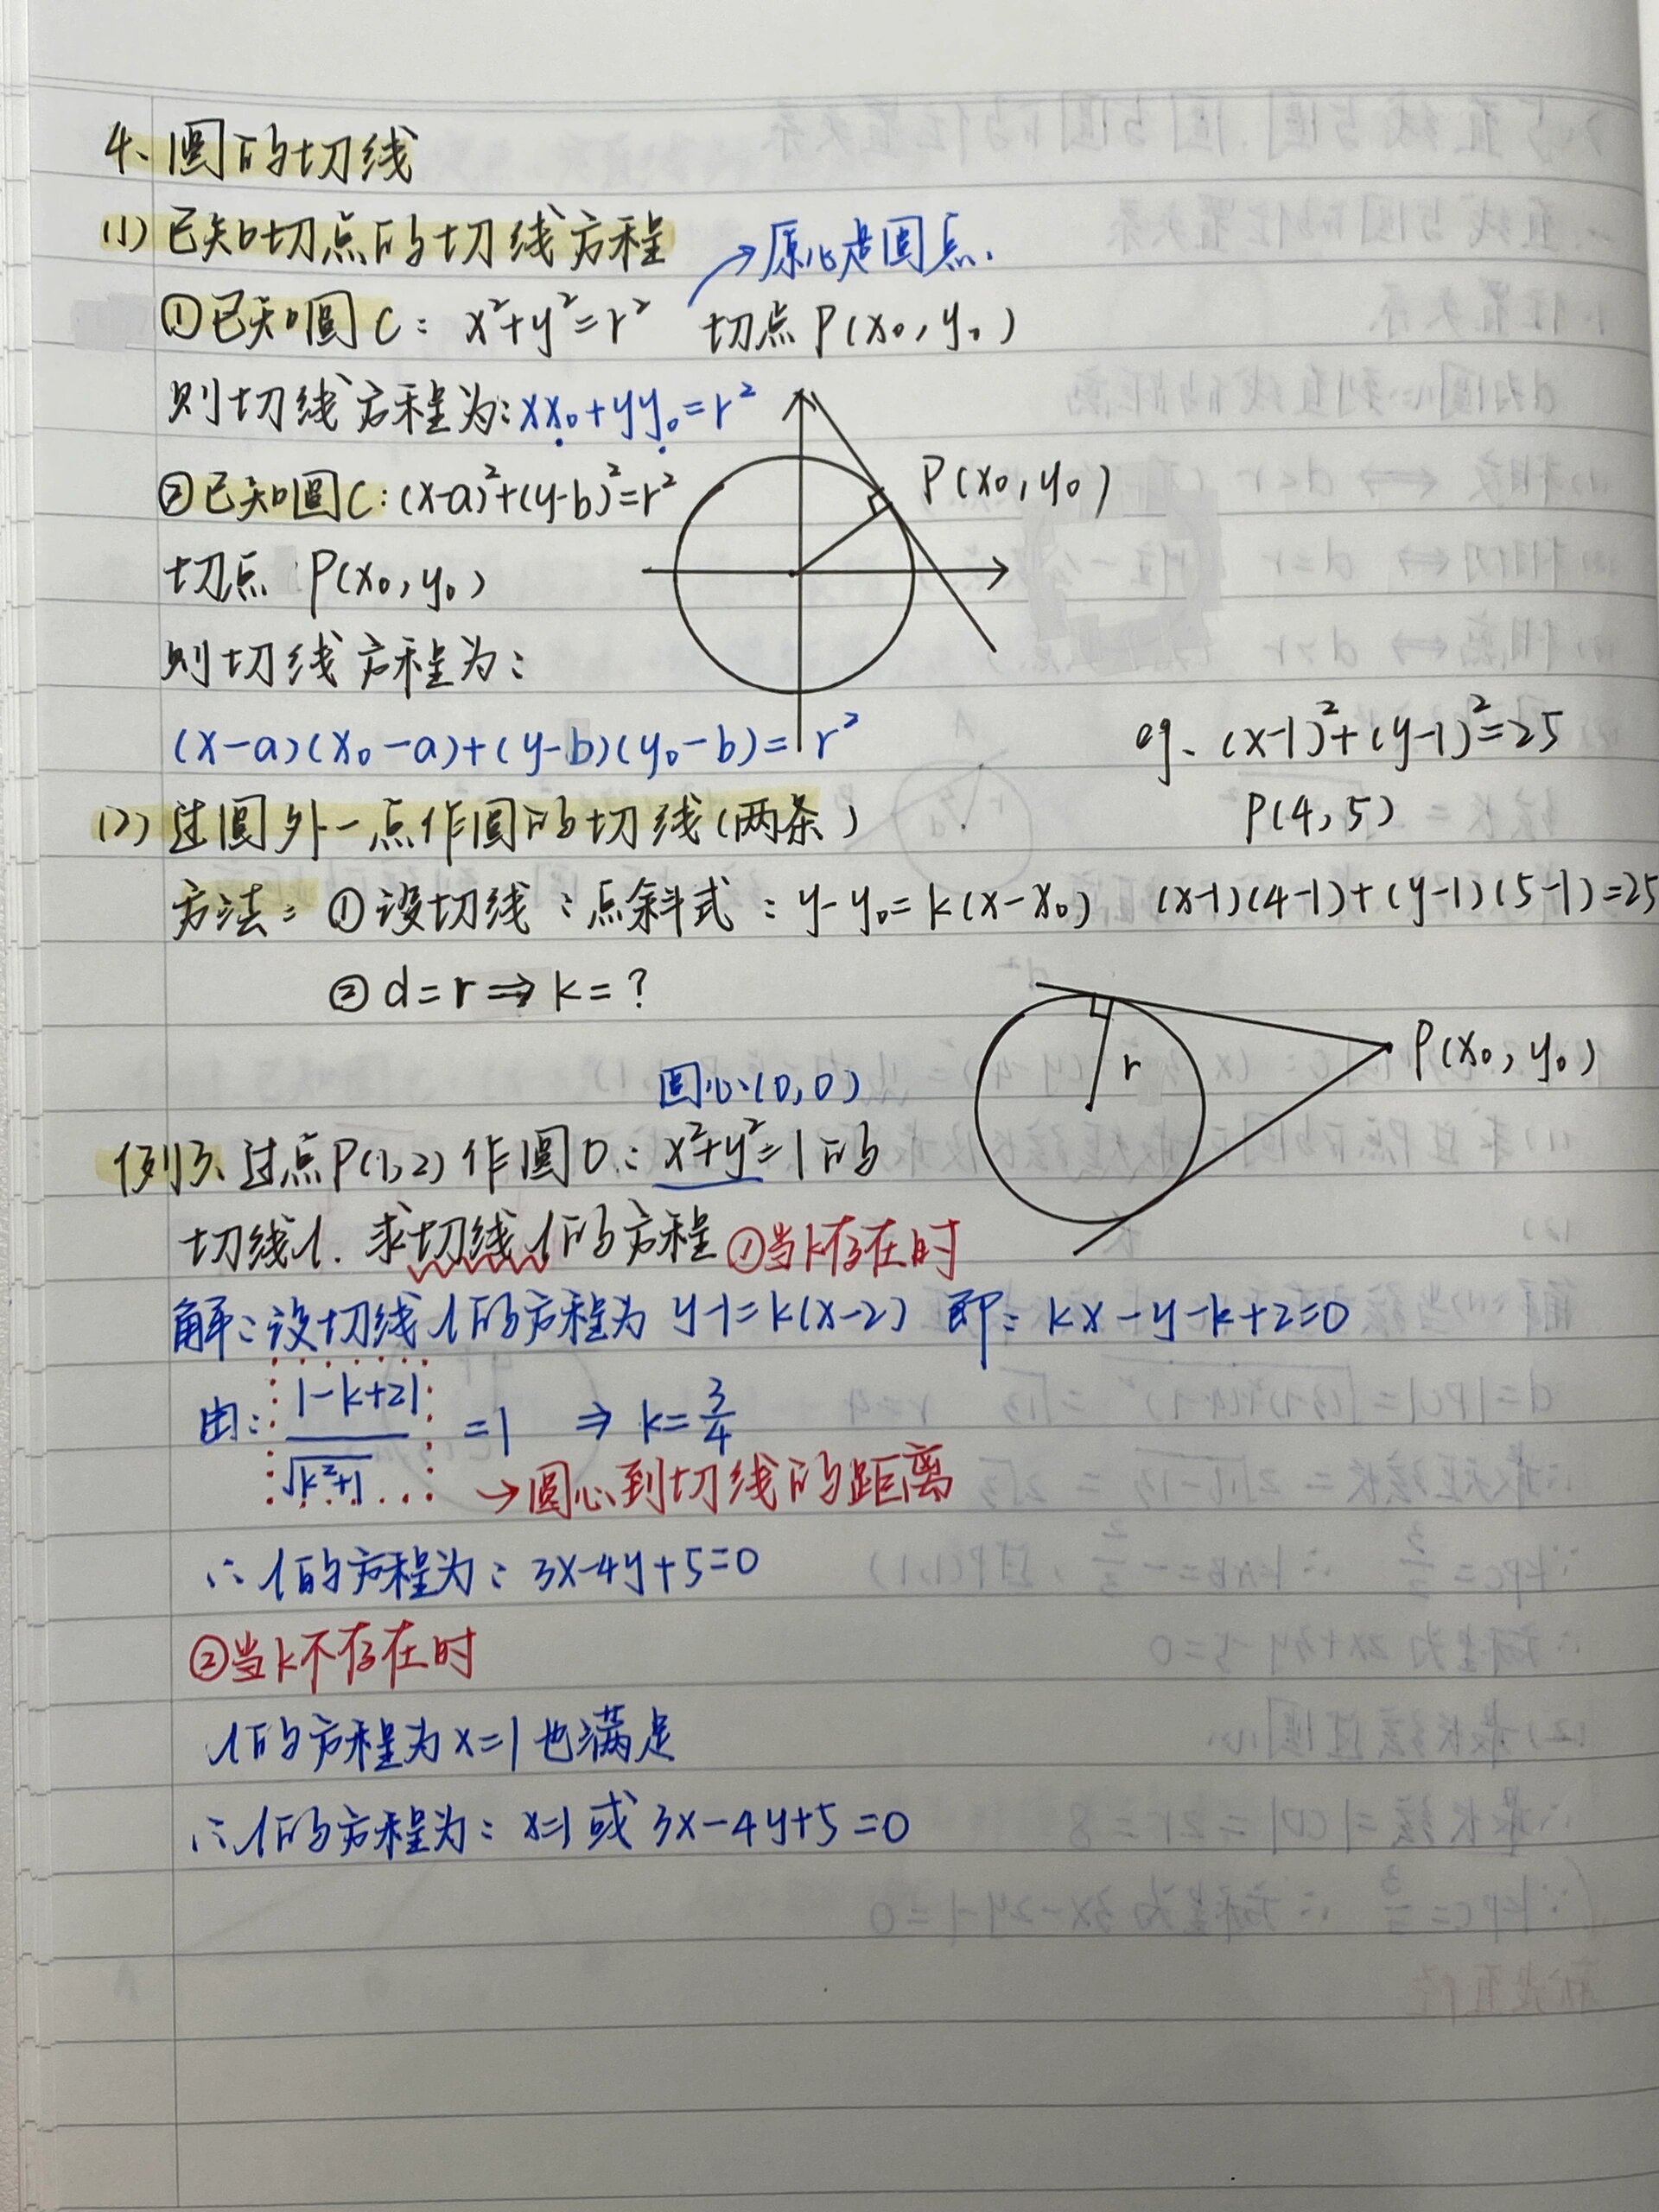 4、圆的切线
(1) 已知切点的切线方程
→原心是圆点.
①已知圆C: x²+y²=r² 切点P(x₀,y₀)
则切线方程为:xx₀+yy₀=r²
②已知圆C:(x-a)²+(y-b)²=r²
P(x₀,y₀)
切点 P(x₀,y₀)
则切线方程为:
(x-a)(x₀-a)+(y-b)(y₀-b)=r²
eg. (x-1)²+(y-1)²=25
P(4,5)
(x-1)(4-1)+(y-1)(5-1)=25
(2) 过圆外一点作圆的切线(两条)
方法: ①设切线:点斜式:y-y₀=k(x-x₀)
②d=r⇒k=?
r
P(x₀,y₀)
圆心(0,0)
例3、过点P(1,2)作圆O:x²+y²=1的
切线l. 求切线l的方程 ①当k存在时
解:设切线l的方程为 y-1=k(x-2) 即: kx-y-k+2=0
由: |-k+2|/√k²+1 =1 ⇒ k=3/4
→圆心到切线的距离
∴l的方程为:3x-4y+5=0
②当k不存在时
l的方程为x=1也满足
∴l的方程为:x=1或 3x-4y+5=0